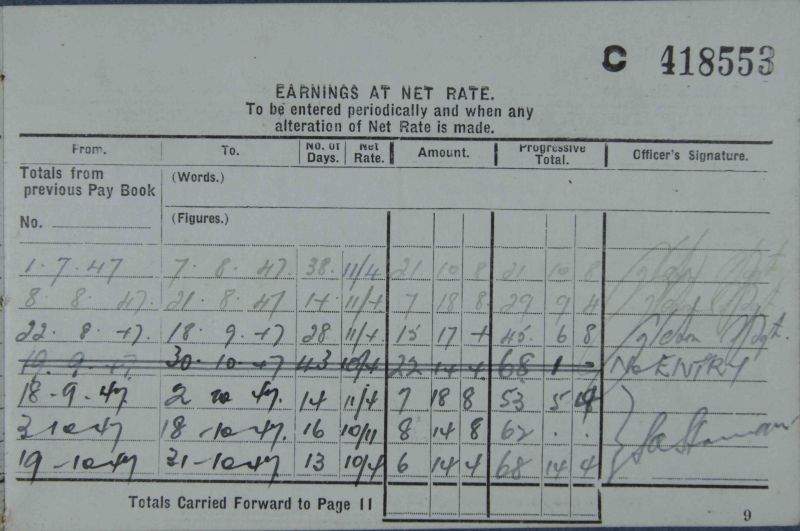 C 418553
EARNINGS AT NET RATE.
To be entered periodically and when any
alteration of Net Rate is made.
From. To. No. of Days. Net Rate. Amount. Progressive Total. Officer's Signature.
Totals from previous Pay Book (Words.)
No. (Figures.)
1.7.47 7.8.47 38. 11/4 21 10 8 21 10 8
8.8.47. 21.8.47 14 11/4 7 18 8 29 9 4
22.8.47. 18.9.47 28 11/4 15 17 4 45. 6 8
19.9.47 30.10.47 43 10/4 22 14 4 68 1 - No ENTRY
18.9.47 2 10 47. 14 11/4 7 18 8 53 5 4
3-10-47 18-10-47. 16 10/11 8 14 8 62 . .
19-10-47 31-10-47 13 10/4 6 14 4 68 14 4
Totals Carried Forward to Page 11
9